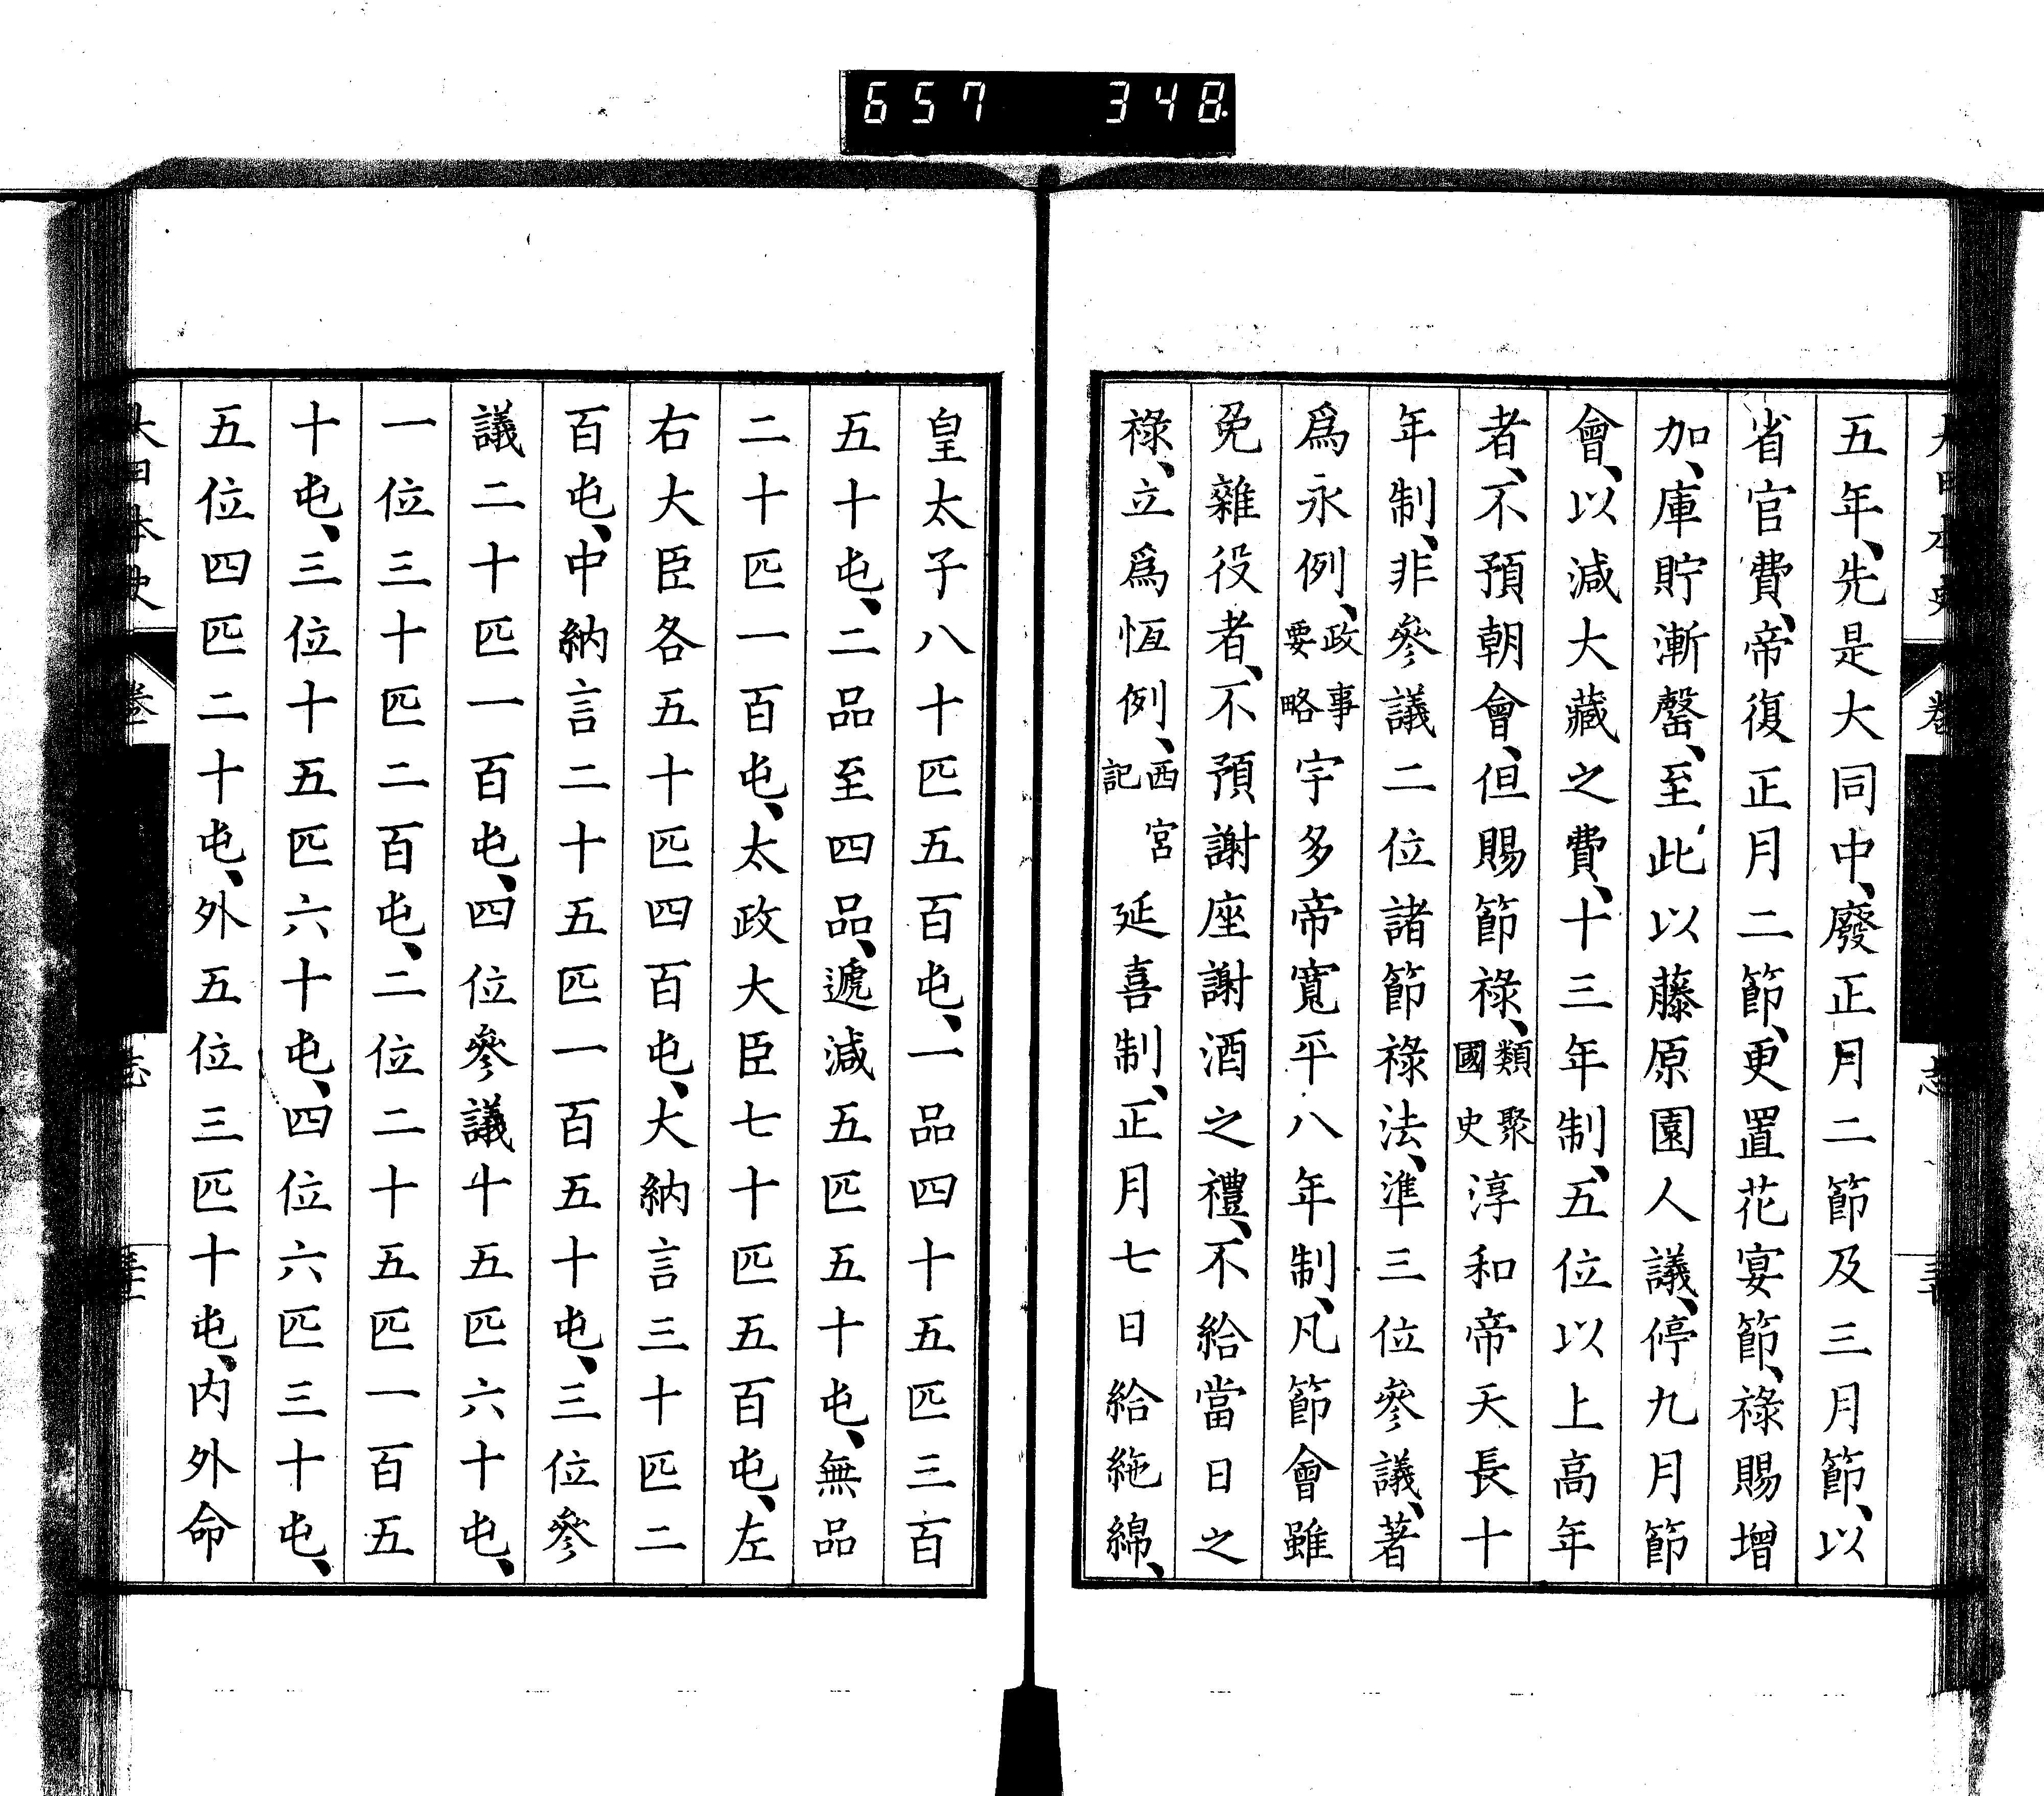 657 348
五年、先是大同中、廢正月二節及三月節、以
省官費、帝復正月二節、更置花宴節、祿賜增
加、庫貯漸罄、至此以藤原園人議、停九月節
會、以減大藏之費、十三年制、五位以上高年
者、不預朝會、但賜節祿、類聚國史淳和帝天長十
年制、非參議二位諸節祿法、準三位參議、著
爲永例、政事要略宇多帝寬平八年制、凡節會雖
免雜役者、不預謝座謝酒之禮、不給當日之
祿、立爲恆例、西宮記延喜制、正月七日給絁綿、
皇太子八十匹五百屯、一品四十五匹三百
五十屯、二品至四品、遞減五匹五十屯、無品
二十匹一百屯、太政大臣七十匹五百屯、左
右大臣各五十匹四百屯、大納言三十匹二
百屯、中納言二十五匹一百五十屯、三位參
議二十匹一百屯、四位參議十五匹六十屯、
一位三十匹二百屯、二位二十五匹一百五
十屯、三位十五匹六十屯、四位六匹三十屯、
五位四匹二十屯、外五位三匹十屯、內外命
大日本史
卷
志